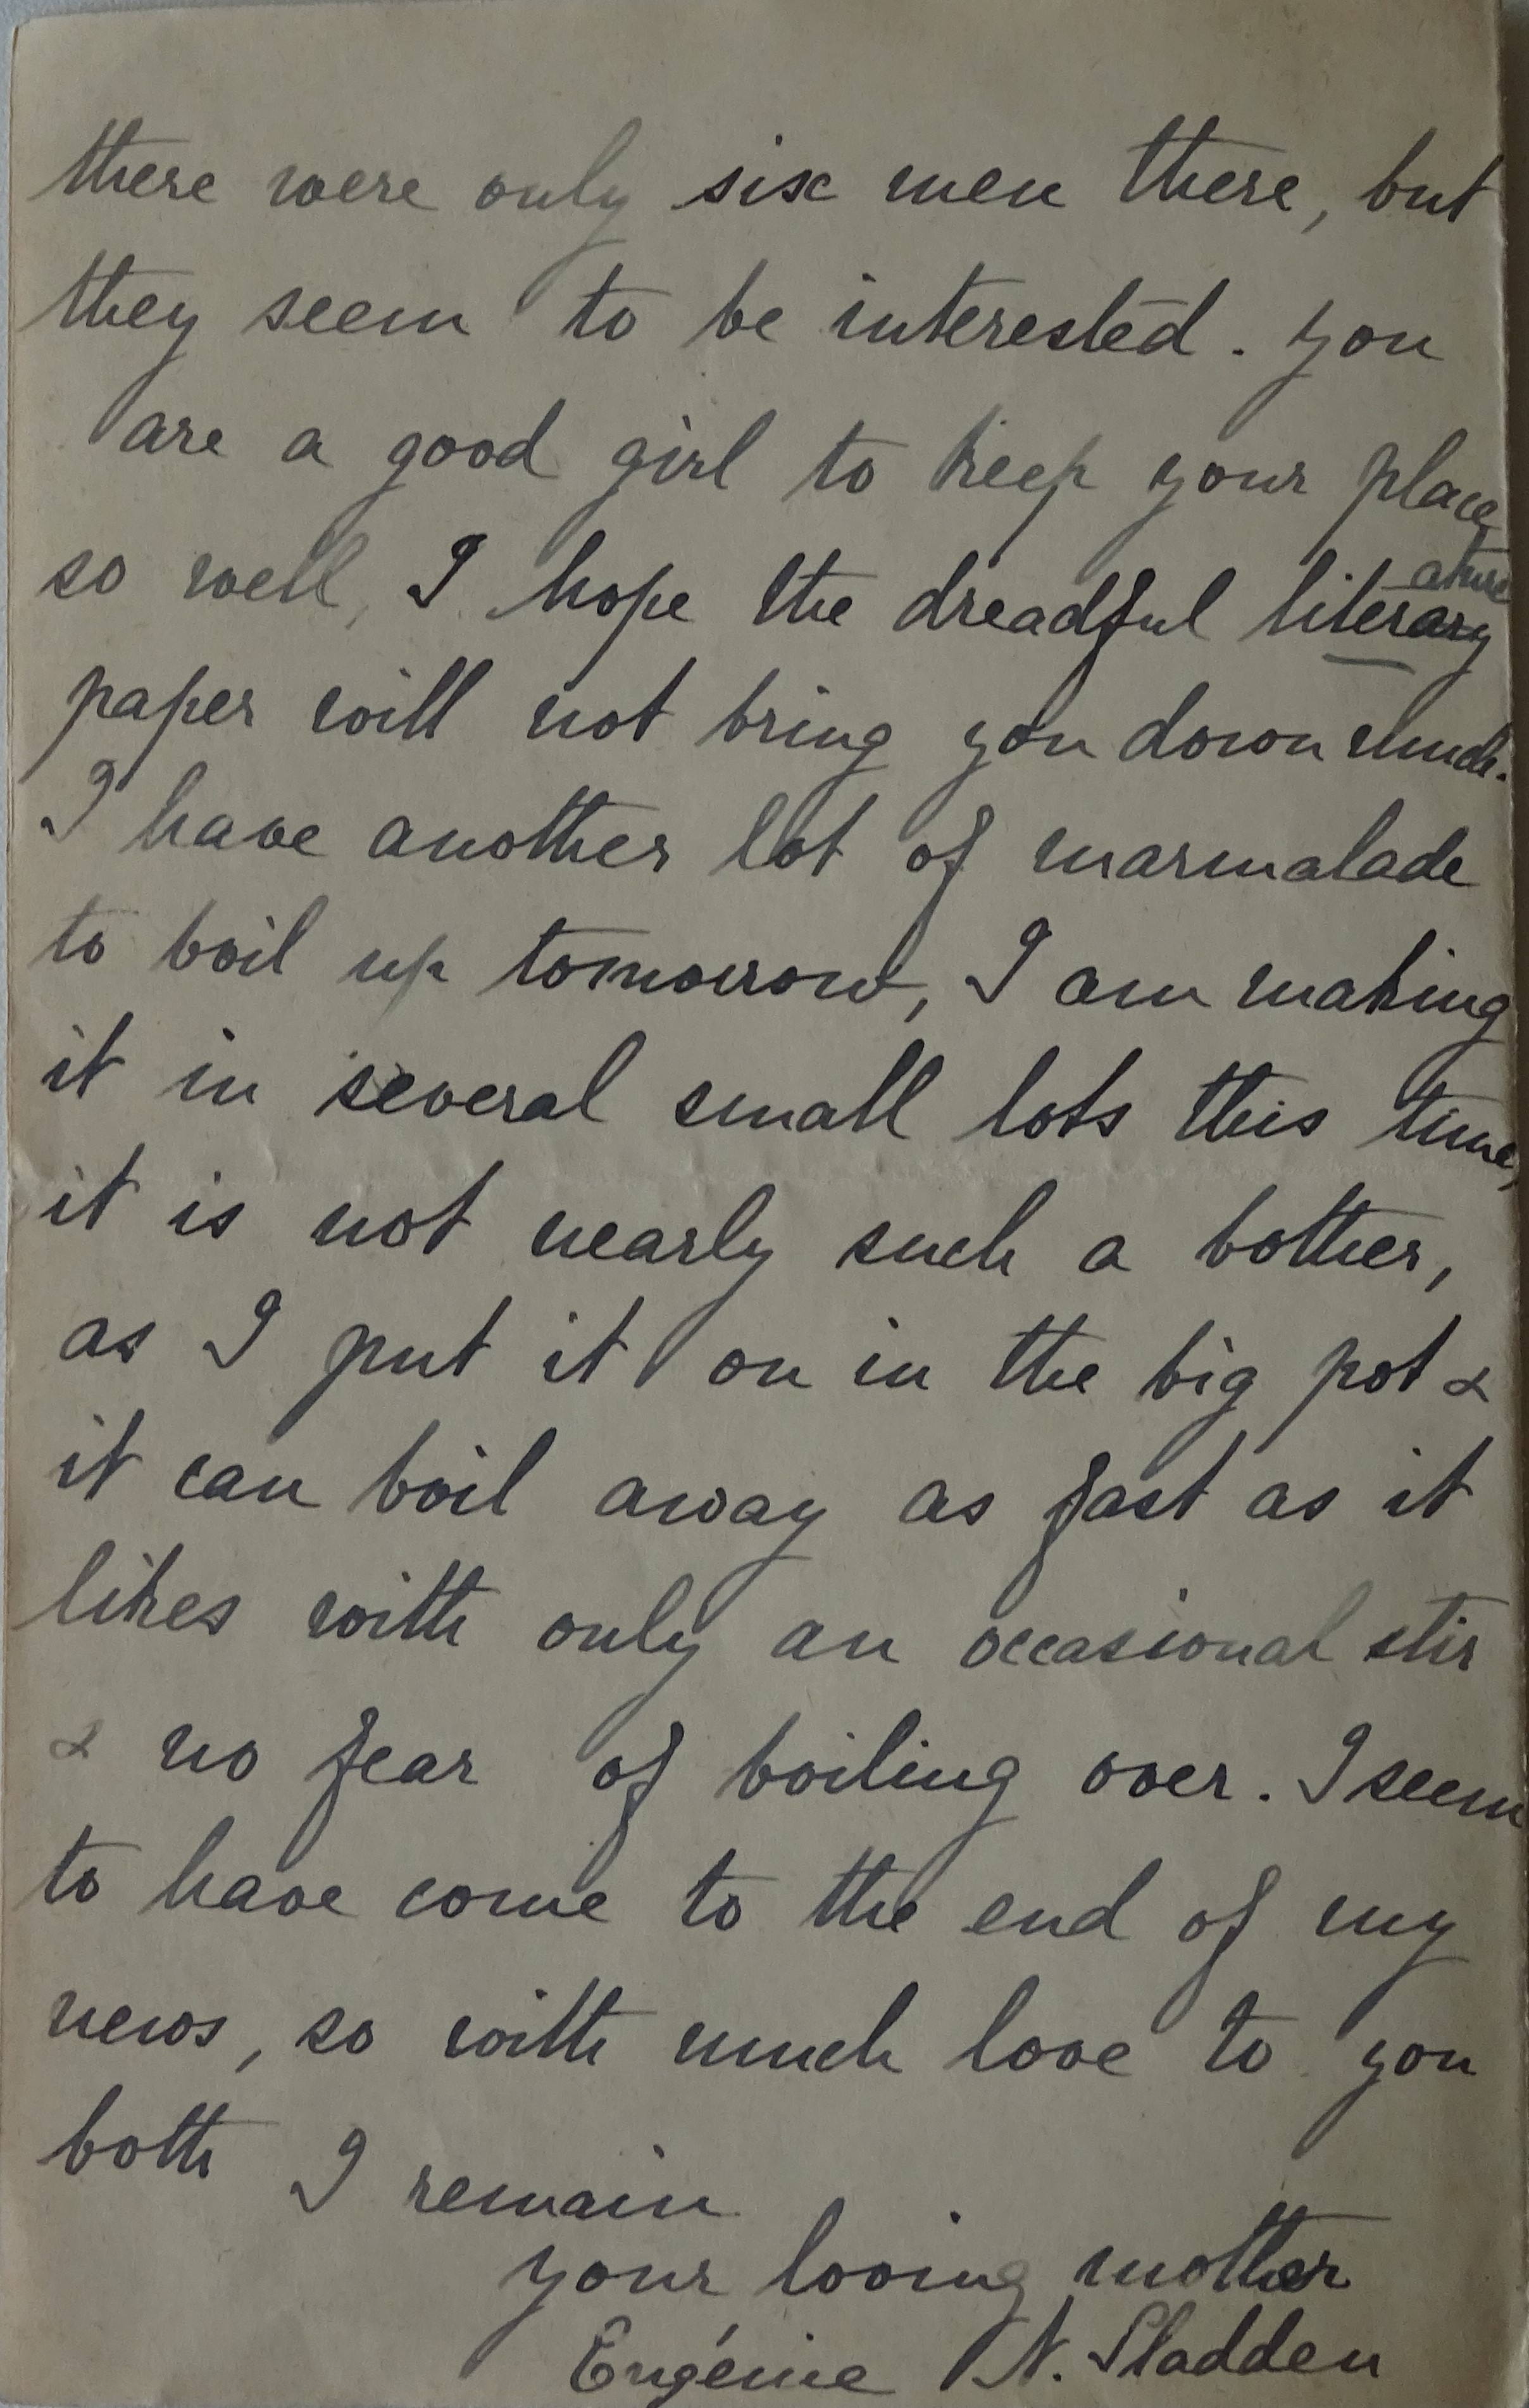 there were only six men there, but
they seem to be interested. You
are a good girl to keep your place
so well, I hope the dreadful literary ature
paper will not bring you down much.
I have another lot of marmalade
to boil up tomorrow, I am making
it in several small lots this time,
it is not nearly such a bother,
as I put it on in the big pot &
it can boil away as fast as it
likes with only an occasional stir
& no fear of boiling over. I seem
to have come to the end of my
news, so with much love to you
both I remain
your loving mother
Eugénie N. Sladden